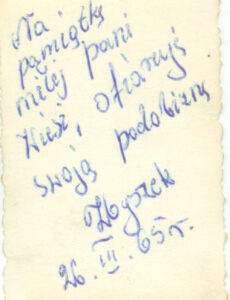 Na
pamiątkę
miłej pani
ofiaruję
swoją podobiznę
Zbyszek
26. III. 65 r.